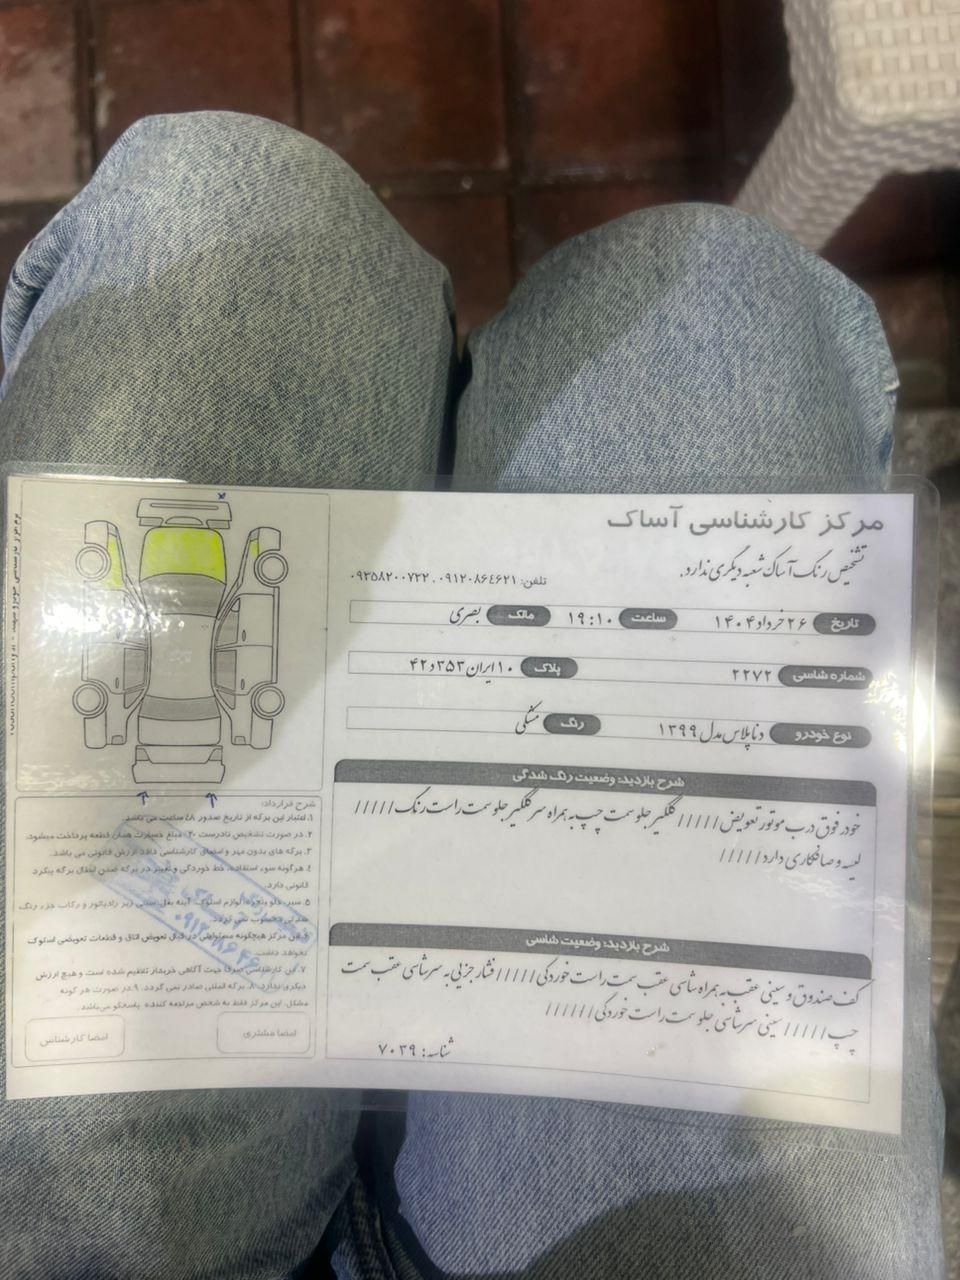 مرکز کارشناسی آساک
تشخیص رنگ آساک شعبه دیگری ندارد.
تلفن: ۰۹۱۲۰۸۶۴۶۲۱ ۰ ۰۹۳۵۸۲۰۰۷۲۲
تاریخ ۲۶ خرداد ۱۴۰۴ ساعت ۱۹:۱۰ مالک بصری
شماره شاسی ۲۲۷۲ پلاک ۱۰ ایران ۳۵۳ و ۴۲
نوع خودرو دنا پلاس مدل ۱۳۹۹ رنگ مشکی
شرح بازدید: وضعیت رنگ شدگی
خودرفوق درب موتور تعویض ///// گلگیر جلو سمت چپ به همراه سر گلگیر جلو سمت راست رنگ /////
لیسه و صافکاری دارد /////
شرح بازدید: وضعیت شاسی
کف صندوق و سینی عقب به همراه شاسی عقب سمت راست خوردگی ///// فشار جزیی به سر شاسی عقب سمت
چپ ///// سینی سر شاسی جلو سمت راست خوردگی //////
شناسه: ۷۰۳۹
شرح قرارداد:
۱. اعتبار این برگه از تاریخ صدور ۴۸ ساعت می باشد.
۲. در صورت تشخیص نادرست ۲۰٪ مبلغ خسارت همان قطعه پرداخت میشود.
۳. برگه های بدون مهر و امضای کارشناسی فاقد ارزش قانونی می باشد.
۴. هرگونه سوء استفاده، خط خوردگی و تغییر در برگه ضمن ابطال برگه پیگرد
قانونی دارد.
۵. سپر، جلو پنجره، لوازم استوک، آینه بغل، سینی زیر رادیاتور و رکاب جزء رنگ
۶. این مرکز هیچگونه مسئولیتی در قبال تعویض اتاق و قطعات تعویضی استوک
نخواهد داشت.
۷. این کارشناسی صرفا جهت آگاهی خریدار تنظیم شده است و هیچ ارزش
دیگری ندارد. ۸. برگه المثنی صادر نمی گردد. ۹. در صورت هر گونه
مشکل، این مرکز فقط به شخص مراجعه کننده پاسخگو می‌باشد.
امضا مشتری
امضا کارشناس